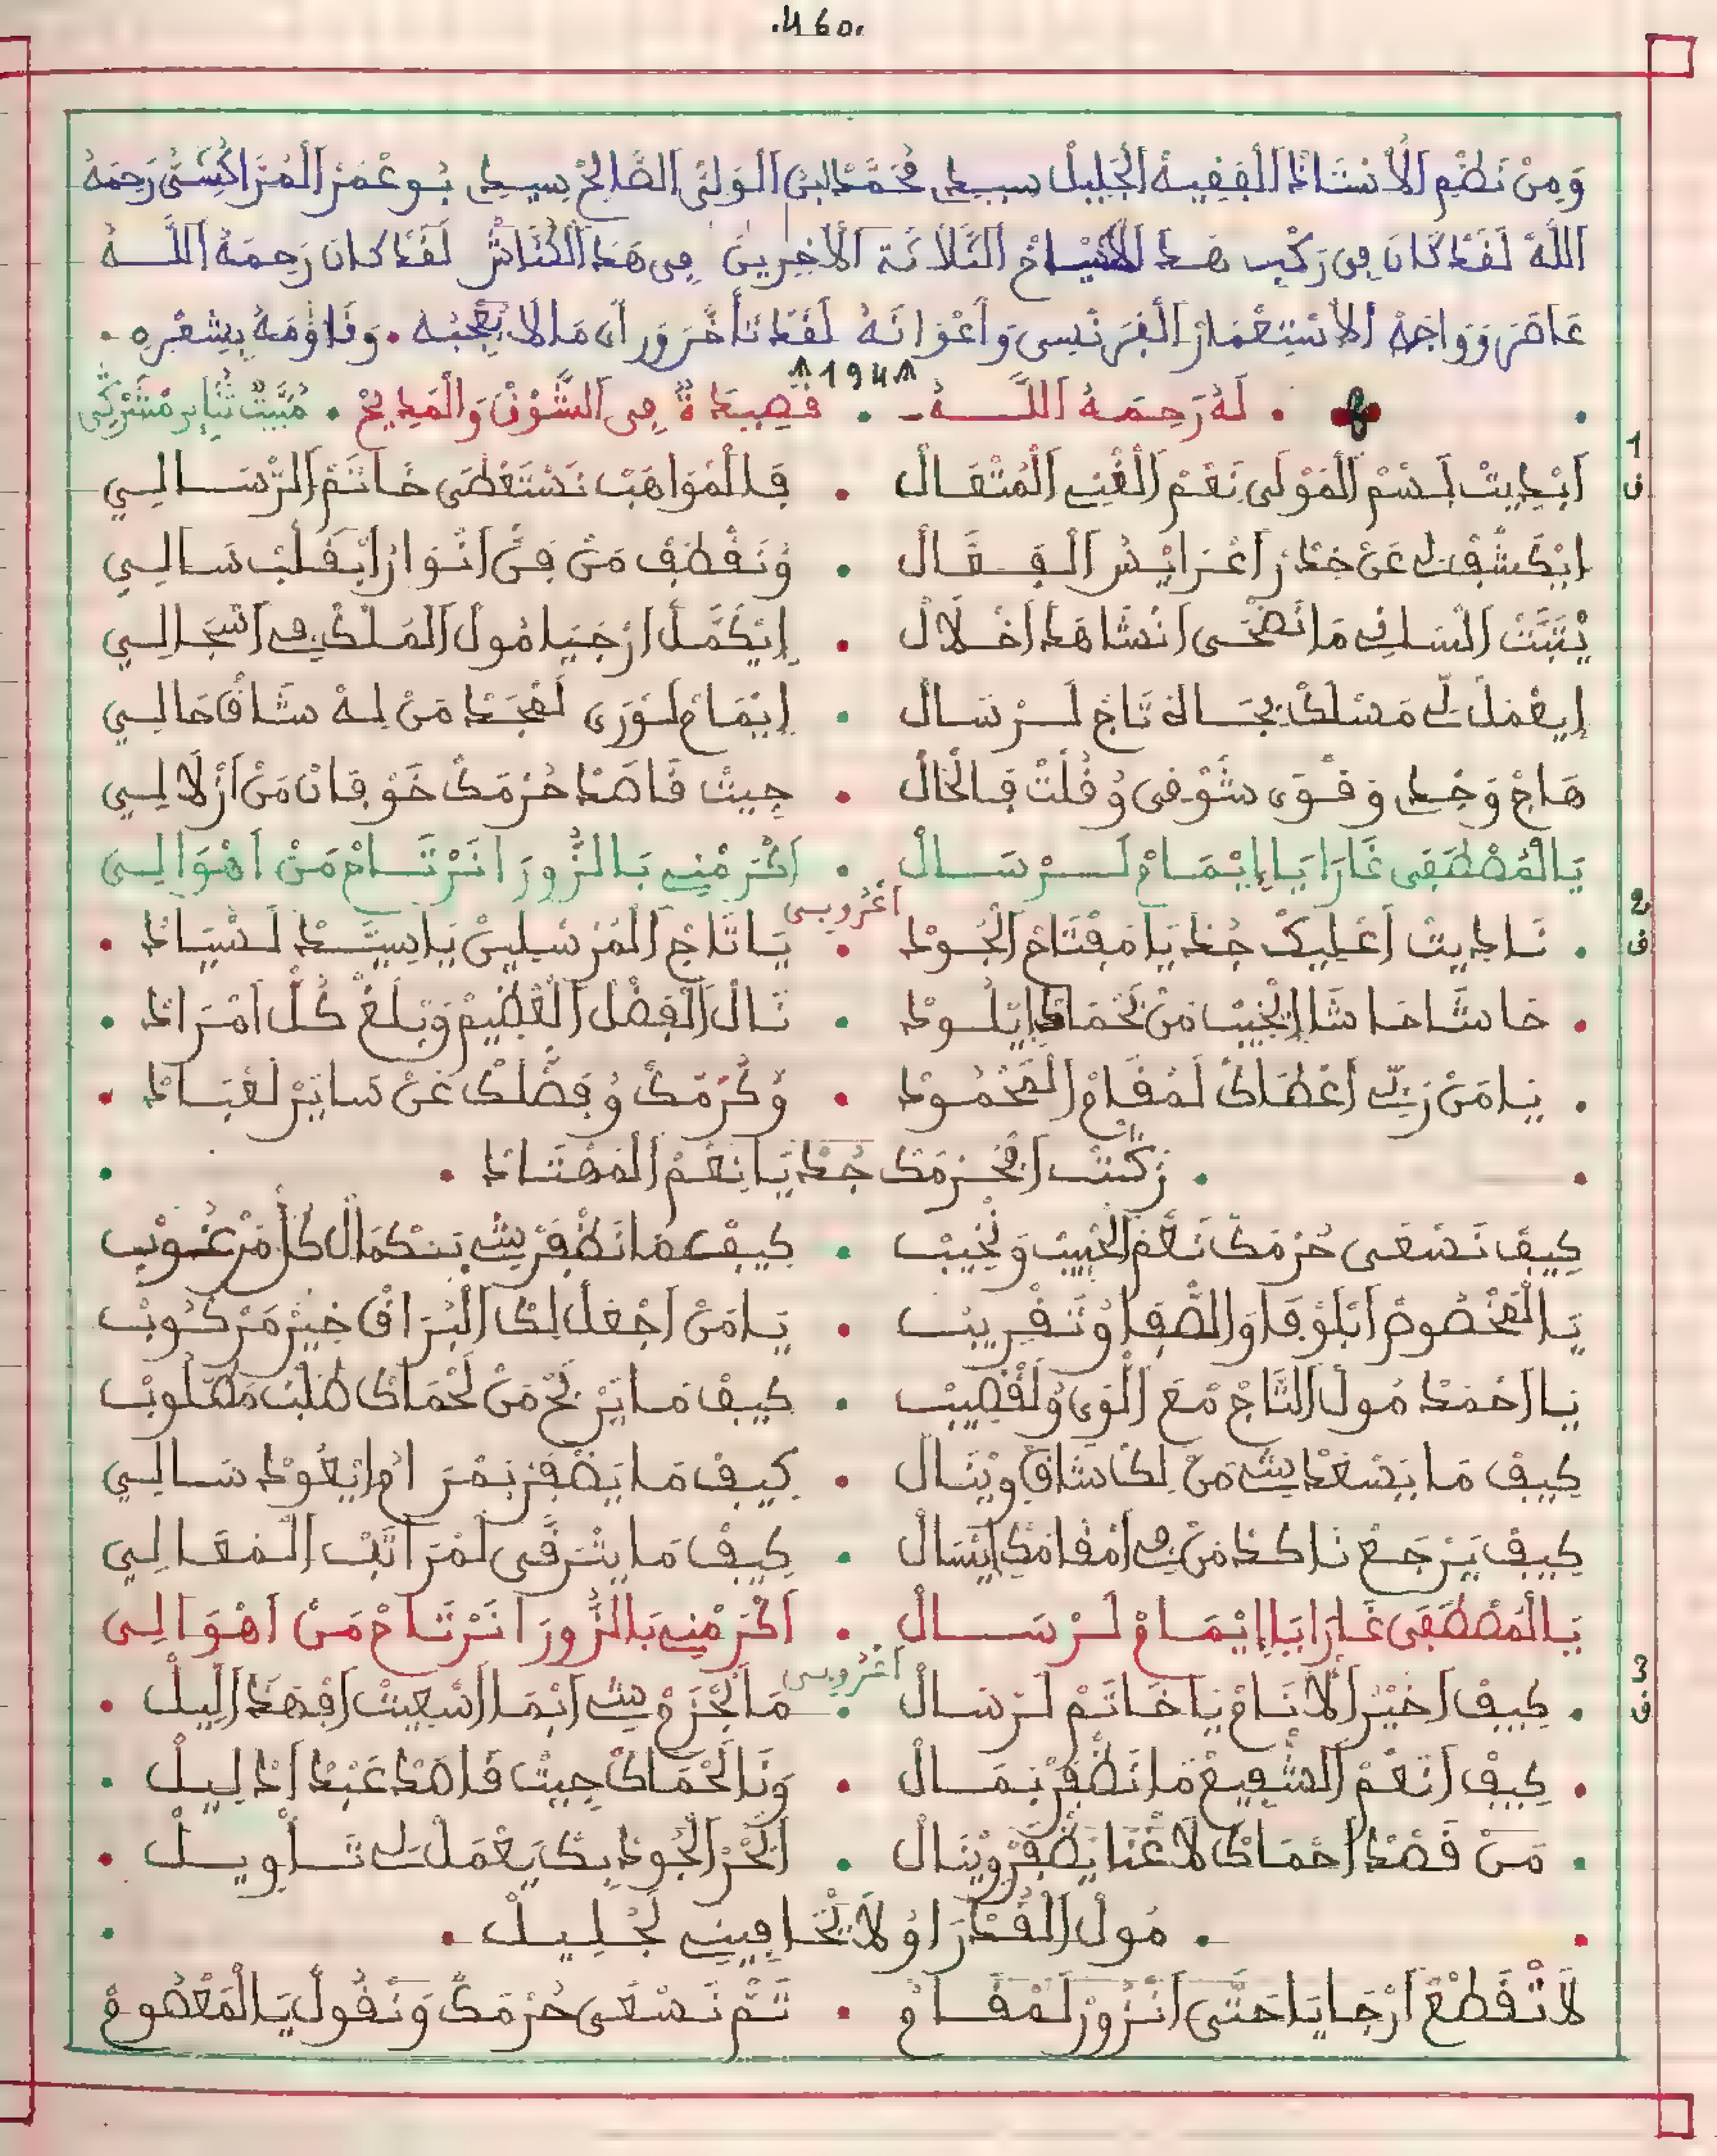 .460.
وَمِنْ نَظْمِ الْأُسْتَاذْ الْفَقِيهْ الْجَلِيلْ سيدي مُحَمَّدْ ابْنْ الْوَلِيّ الصَّالِحْ سِيدِي بُوعْمَرْ الْمُرَّاكُشِيّ رَحِمَهُ
اللَّهْ لَقَدْ كَانَ فِي رَكْبِ هَذ الْأَشْيَاخْ الثَّلَاثَة الْأَخِرِينَ فِي هَذَ الْكُنَّاشْ لَقَدْ كَانَ رَحِمَهُ اللَّهُ
عَاصَرَ وَوَاجَهْ الْاسْتِعْمَارْ الْفِرَنْسِي وَأَعْوَانَهُ لَقَدْ تَأَخَّرَ وَرأى مَا لَا يُعْجِبُه . وَقَاوَمَهُ بِشِعْرِهِ .
1941
. لَهُ رَحِمَهُ اللَّهُ . قَصِيدَةٌ فِي الشَّوْقْ وَالْمَدِيحْ . مُبَيَّتْ ثُنَاءِي مَشَرْكِي
1 ف
اَبْدِيتْ بَسْمْ الْمَوْلَى نَعْمْ الْغْنِي الْمُتْعَالْ . فَالْمُوَاهَبْ نَسْتَعْطَى خَاتَمْ الرّْسَالِي
ايْكَشْفْ لِي عَنْ خدُرْ اعْرَايْسْ الْفعَالْ . وُنَقْطَفْ مَنْ فَنّْ انْوَارْ ابْقَلْبْ سَالِي
يْثَبَّتْ لْسَانِي مَا نَضْحَى انْشَاهَدْ اخْلَالْ . اِيْكَمَّلْ ارْجَيَا مُولْ الْمَلْكْ فِي اسْجَالِي
اِيعْمَلْ لِي مَسْلَكْ بجَاهْ تَاجْ لَرْسَالْ . اِيْمَامْ لَوْرَى لَمْجَدْ مَنْ لِهْ شَاقْ حَالِي
هَاجْ وَجْدِي وَقْوَى شَوْقِي وُقُلْتْ فَالْحَالْ . جِيتْ قَاصَدْ حُرْمَكْ خَوْفَانْ مَنْ ازْلَالِي
يَا الْمُصْطَفَى غَارَا يَا اِيْمَامْ لَرْسَالْ . اَكْرَمْنِي بَالزُّورَا نَرْتَاحْ مَنْ اهْوَالِي
2 ف
اَعْرُوبِي
. نَادِيتْ اعْلِيكْ جُدْ يَا مَفْتَاحْ الْجُودْ . يَا تَاجْ الْمُرْسَلِينْ يَا سِيَّدْ لَسْيَادْ .
. حَاشَا حَاشَا اِيْخِيبْ مَنْ لَحْمَاكْ اِيْلُودْ . نَالْ الْفَضْلْ الْعْظِيمْ وَبْلَغْ كُلْ امْرَادْ .
. يَا مَنْ رَبِّي اعْطَاكْ لَمْقَامْ الْمَحْمُودْ . وَكْرَمَكْ وُفَضْلَكْ عَنْ سَايَرْ لَعْبَادْ .
. زكْتْ افْحُرْمَكْ جُدْ يَا نِعْمْ الْمَهْتَادْ .
كِيفْ نَسْعَى حُرْمَكْ نَعْمْ الْحْبِيبْ وَنْخِيبْ . كِيفْ مَا نَظْفَرْ شِي بَتكْمَالْ كُلْ مَرْغُوبْ
يَا الْمَخْصُوصْ ابْلَوْفَا وَالصّْفَا وُتَقْرِيبْ . يَا مَنْ اجْعَلْ لِكْ الْبُرَاقْ خِيرْ مَرْكُوبْ
يَا احْمَدْ مُولْ التَّاجْ مْعَ اللّْوَى وُلَقْضِيبْ . كِيفْ مَا يَرْبَحْ مَنْ لَحْمَاكْ طْلَبْ مَطْلُوبْ
كِيفْ مَا يَسْعَدْ شِي مَنْ لِكْ شَاقْ وِينَالْ . كِيفْ مَا يَضْفَرْ بَمْرَامْ ايْعُودْ سَالِي
كِيفْ يَرْجَعْ نَاكَدْ مَنْ فِي امْقَامَكْ ايْسَالْ . كِيفْ مَا يَتْرَقَّى لَمْرَاتَبْ الْمْعَالِي
يَا الْمُصْطَفَى غَارَا يَا اِيْمَامْ لَرْسَالْ . اَكْرَمْنِي بَالزُّورَا نَرْتَاحْ مَنْ اهْوَالِي
3 ف
اَعْرُوبِي
. كِيفْ اخِيرْ الْانَامْ يَا خَاتَمْ لَرْسَالْ . مَا نَجْزَمْ شِي ابْمَا اسْعِيتْ افْهَذْ اللِّيلْ .
. كِيفْ انَعْمْ الشّْفِيعْ مَا نَظْفَرْ بَمَالْ . وَنَا لَحْمَاكْ جِيتْ قَاصَدْ عَبْدْ ادْلِيلْ .
. مَنْ قَصْدْ احْمَاكْ لَا غْنَا يَضْفَرْ وِينَالْ . ابْحَرْ الْجُودْ بِكْ يَعْمَلْ لِي تَاوِيلْ .
. مُولْ الْقُدْرَا وُلَا يْخَافِينِي لَجْلِيلْ .
لَا تْقَطْعْ ارْجَايَا حَتَّى انْزُورْ لَمْقَامْ . تَمّْ نَسْعَى حُرْمَكْ وَنْقُولْ يَا الْمَعْصُومْ